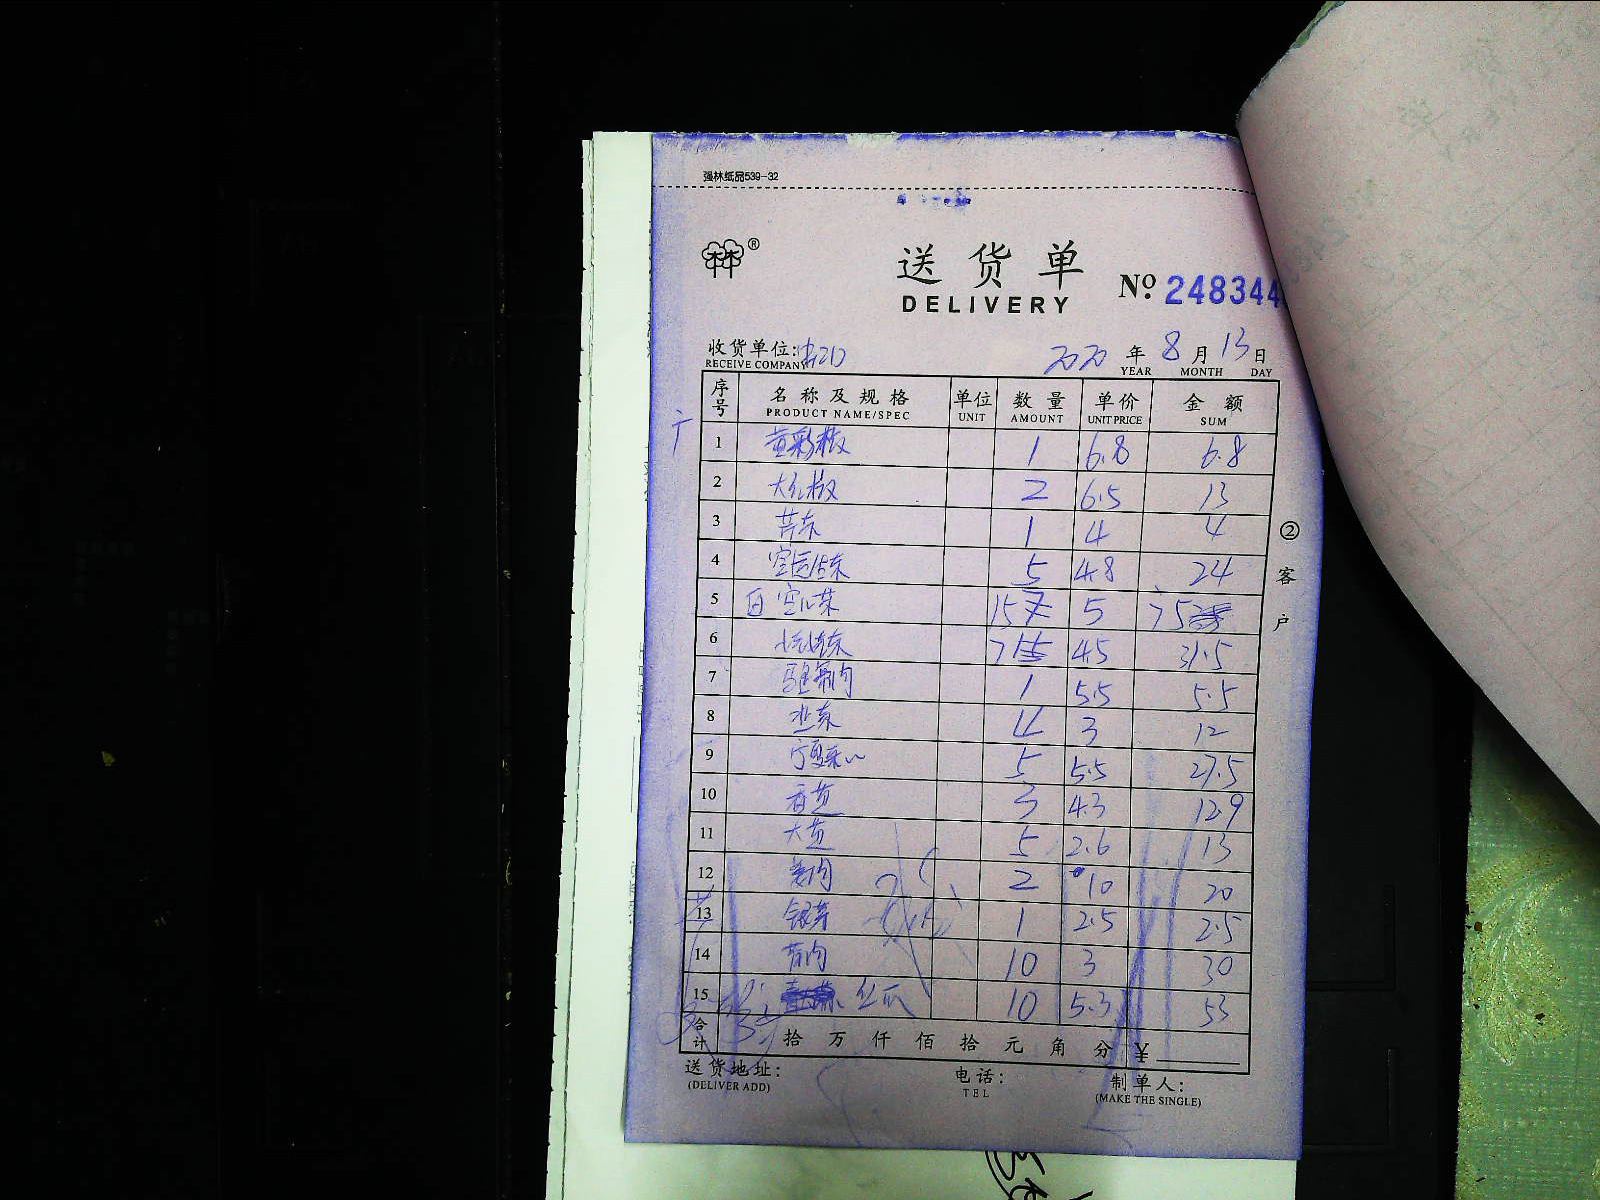 强林纸品539-32
®
送货单
DELIVERY
Nº 248344
收货单位:
RECEIVE COMPANY
2020 年 8 月 13 日
YEAR MONTH DAY
序号 名称及规格 单位 数量 单价 金额
PRODUCT NAME/SPEC UNIT AMOUNT UNIT PRICE SUM
1 黄彩椒 1 6.8 6.8
2 大红椒 2 6.5 13
3 芹菜 1 4 4
4 5 4.8 24
5 白 空心菜 15 5 75
6 7 4.5 31.5
7 1 5.5 5.5
8 韭菜 4 3 12
9 宁夏菜心 5 5.5 27.5
10 香芹 3 4.3 12.9
11 大 5 2.6 13
12 姜肉 2 10 20
13 银芽 1 2.5 2.5
14 10 3 30
15 丝瓜 10 5.3 53
合计 拾 万 仟 佰 拾 元 角 分 ¥
送货地址: 电话: 制单人:
(DELIVER ADD) TEL (MAKE THE SINGLE)
② 客户